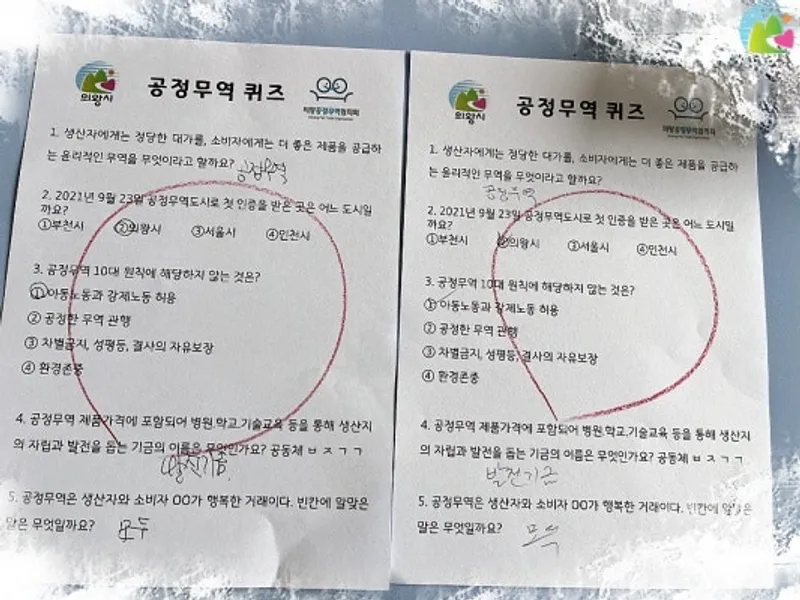 의왕시
공정무역 퀴즈
의왕공정무역협의회
1. 생산자에게는 정당한 대가를, 소비자에게는 더 좋은 제품을 공급하
는 윤리적인 무역을 무엇이라고 할까요? 공정무역
2. 2021년 9월 23일 공정무역도시로 첫 인증을 받은 곳은 어느 도시일
까요?
①부천시 ②의왕시 ③서울시 ④인천시
3. 공정무역 10대 원칙에 해당하지 않는 것은?
①아동노동과 강제노동 허용
② 공정한 무역 관행
③ 차별금지, 성평등, 결사의 자유보장
④ 환경존중
4. 공정무역 제품가격에 포함되어 병원.학교.기술교육 등을 통해 생산지
의 자립과 발전을 돕는 기금의 이름은 무엇인가요? 공동체 ㅂ ㅈ ㄱ ㄱ
발전기금
5. 공정무역은 생산자와 소비자 OO가 행복한 거래이다. 빈칸에 알맞은
말은 무엇일까요? 모두
의왕시
공정무역 퀴즈
의왕공정무역협의회
1. 생산자에게는 정당한 대가를, 소비자에게는 더 좋은 제품을 공급하
는 윤리적인 무역을 무엇이라고 할까요?
공정무역
2. 2021년 9월 23일 공정무역도시로 첫 인증을 받은 곳은 어느 도시일
까요?
①부천시 ②의왕시 ③서울시 ④인천시
3. 공정무역 10대 원칙에 해당하지 않는 것은?
① 아동노동과 강제노동 허용
② 공정한 무역 관행
③ 차별금지, 성평등, 결사의 자유보장
④ 환경존중
4. 공정무역 제품가격에 포함되어 병원.학교.기술교육 등을 통해 생산지
의 자립과 발전을 돕는 기금의 이름은 무엇인가요? 공동체 ㅂ ㅈ ㄱ ㄱ
발전기금
5. 공정무역은 생산자와 소비자 OO가 행복한 거래이다. 빈칸에 알맞은
말은 무엇일까요?